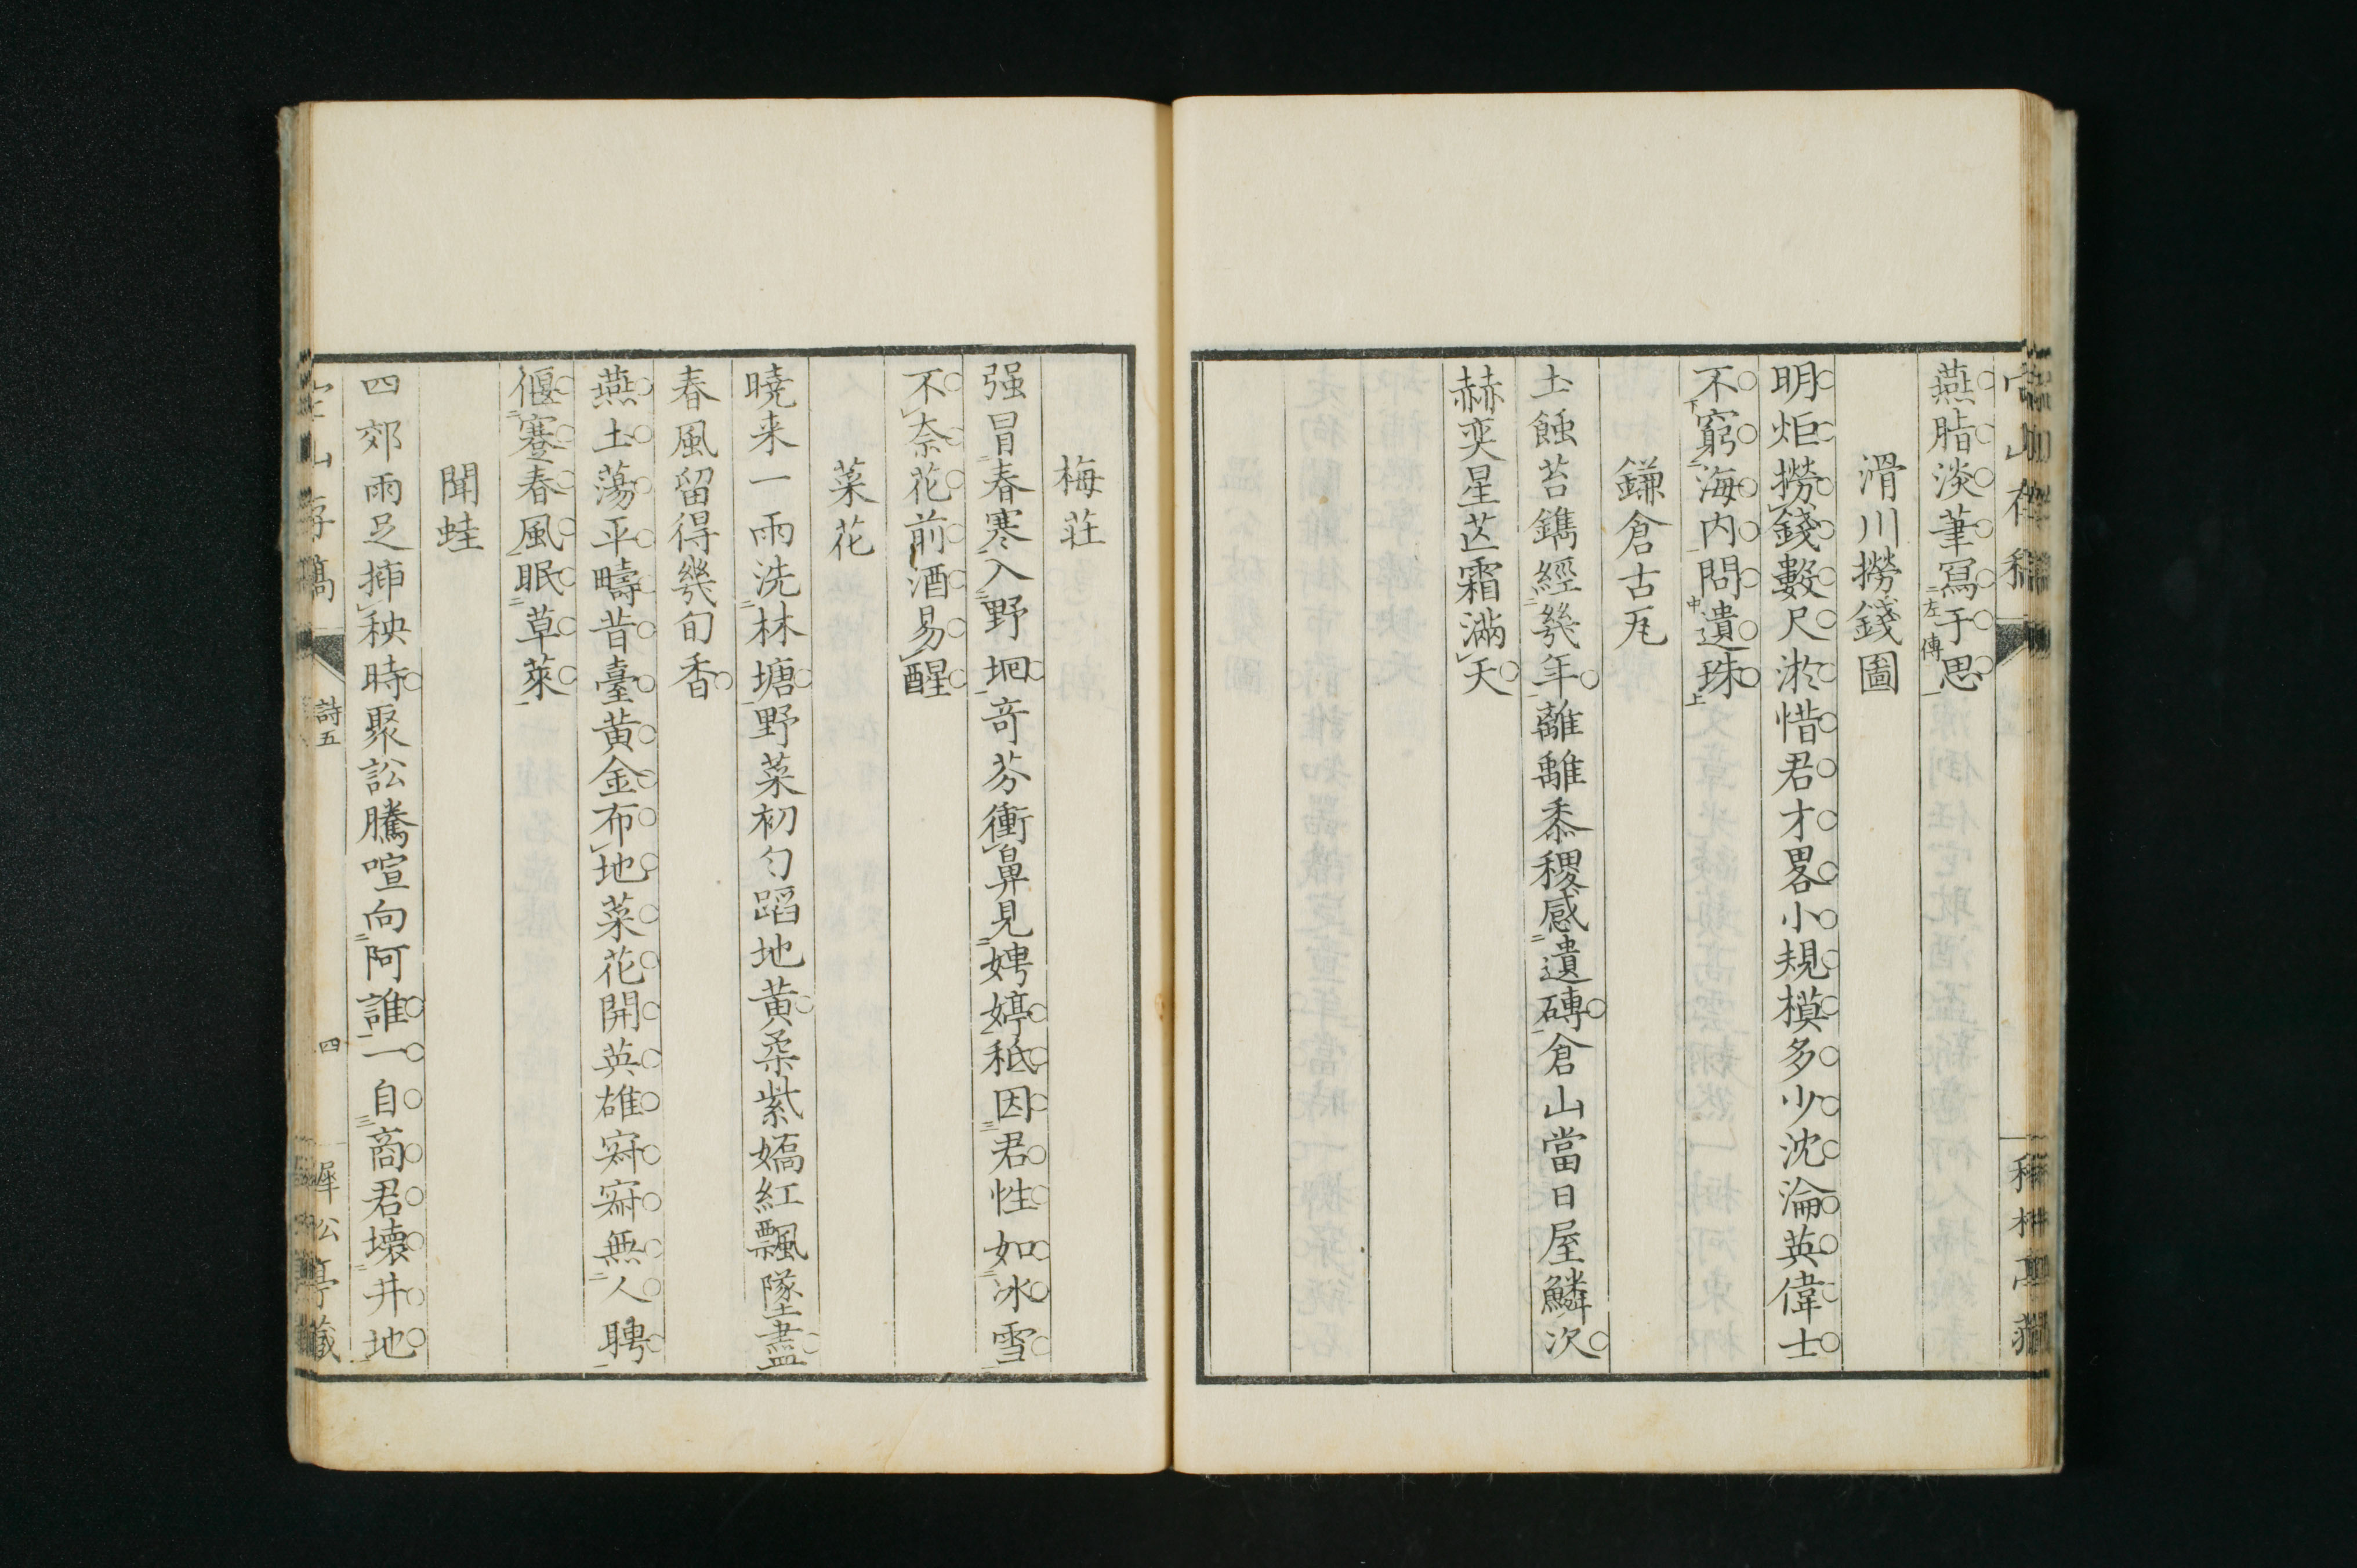 燕脂淡筆寫于思
左傳
滑川撈錢圖
明炬撈錢數尺淤惜君才畧小規模多少沈淪英偉士
不窮海内問遺珠
鎌倉古瓦
土蝕苔鐫經幾年離離黍稷感遺磚倉山當日屋鱗次
赫奕星芒霜滿天
梅莊
强冒春寒入野坰奇芬衝鼻見娉婷秖因君性如冰雪
不奈花前酒易醒
菜花
曉来一雨洗林塘野菜初勻蹈地黄柔紫嬌紅飄墜盡
春風留得幾旬香
燕土蕩平疇昔臺黄金布地菜花開英雄寂寂無人聘
偃蹇春風眠草萊
聞蛙
四郊雨足揷秧時聚訟騰喧向阿誰一自商君壞井地
山存稿 詩五 四 犀公亭藏